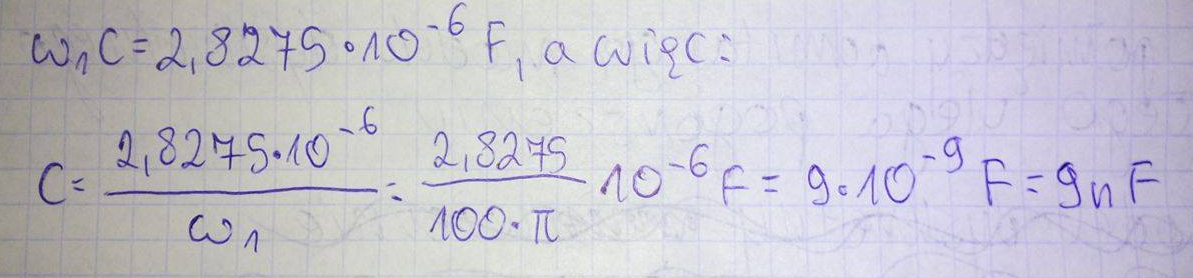 ω₁C = 2,8275·10⁻⁶ F, a więc:
C = (2,8275·10⁻⁶)/ω₁ = (2,8275)/(100·π) 10⁻⁶ F = 9·10⁻⁹ F = 9nF